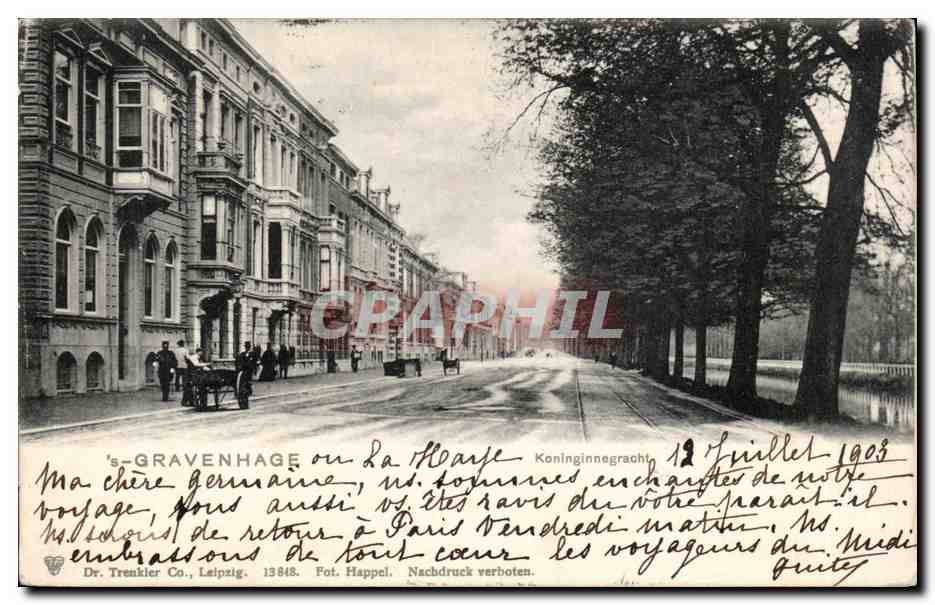 CPAPHIL
's-GRAVENHAGE ou La Haye Koninginnegracht. 12 Juillet 1903
Ma chère Germaine, ns. sommes enchantés de notre
voyage, vous aussi vs. êtes ravis du vôtre paraît-il.
Ns. serons de retour à Paris Vendredi matin. Ns.
embrassons de tout cœur les voyageurs du Midi
Dr. Trenkler Co., Leipzig. 13848. Fot. Happel. Nachdruck verboten.